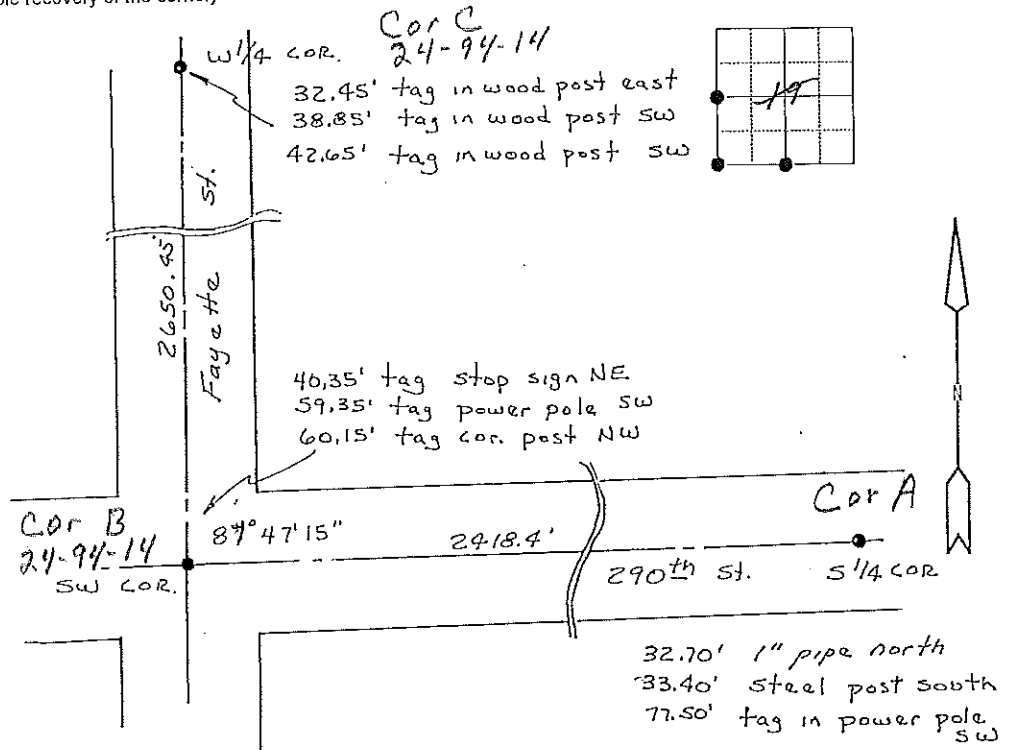 Cor C
24-94-14
W 1/4 COR.
32.45' tag in wood post east
38.85' tag in wood post SW
42.65' tag in wood post SW
19
St.
Fayette
2650.45'
40.35' tag stop sign NE
59.35' tag power pole SW
60.15' tag cor. post NW
N
Cor B
24-94-14
SW COR.
47'15"
2418.4'
Cor A
290th St.
S 1/4 COR
32.70' 1" pipe north
33.40' steel post south
77.50' tag in power pole
SW